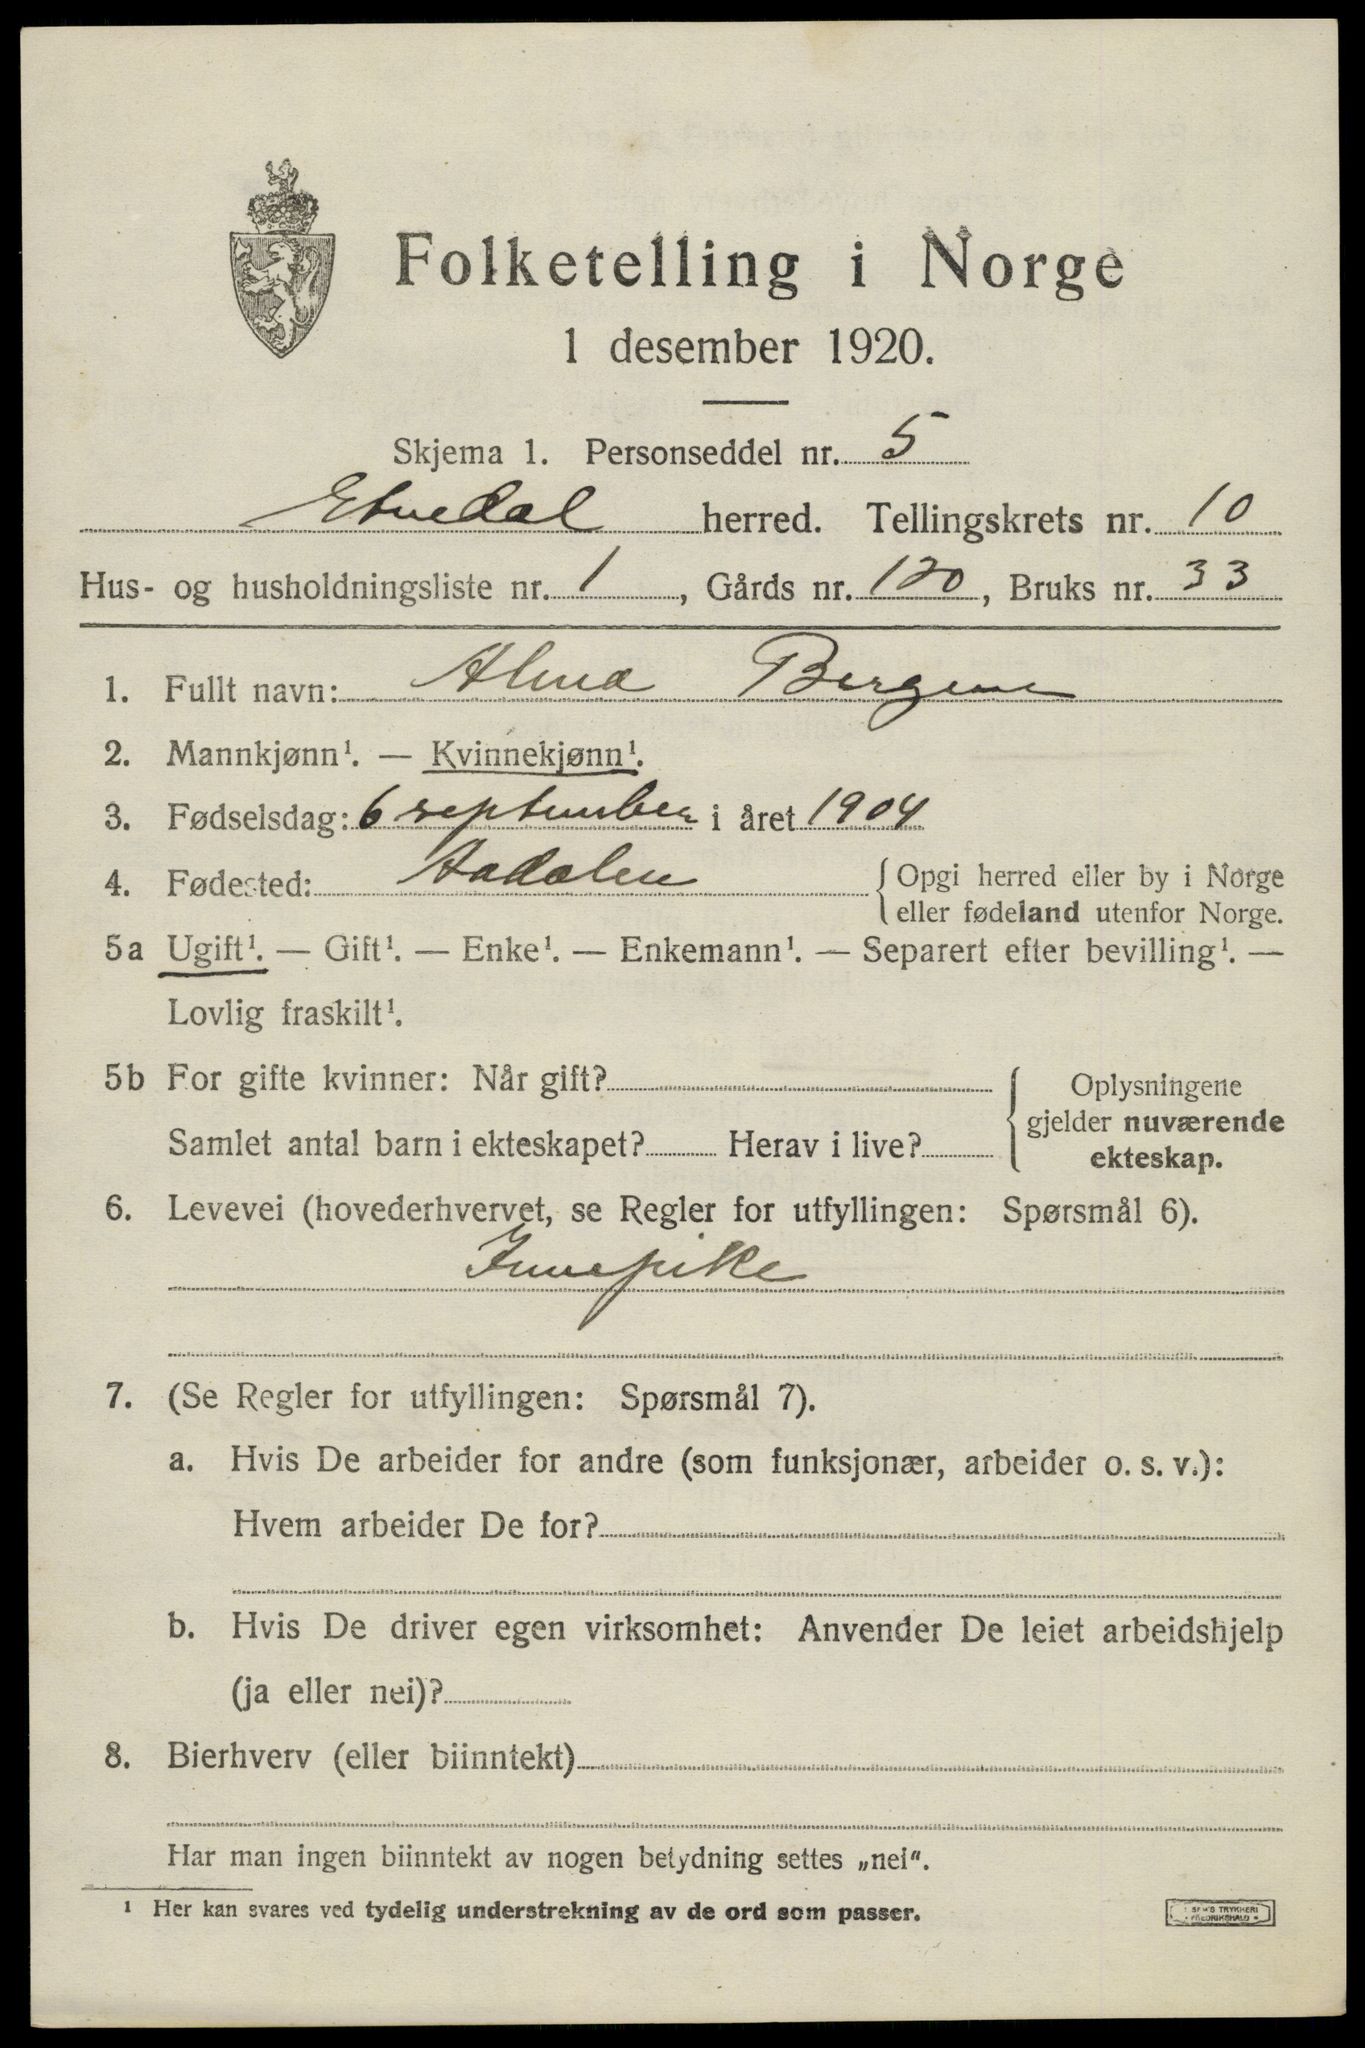 Folketelling i Norge
1 desember 1920.
Skjema 1. Personseddel nr. 5
Etnedal herred. Tellingskrets nr. 10
Hus- og husholdningsliste nr. 1, Gårds nr. 120, Bruks nr. 33
1. Fullt navn: Alma Bergene
2. Mannkjønn¹. — Kvinnekjønn¹.
3. Fødselsdag: 6 september i året 1904
4. Fødested: Aadalen { Opgi herred eller by i Norge
eller fødeland utenfor Norge.
5a Ugift¹. — Gift¹. — Enke¹. — Enkemann¹. — Separert efter bevilling¹. —
Lovlig fraskilt¹.
5b For gifte kvinner: Når gift? { Oplysningene
gjelder nuværende
Samlet antal barn i ekteskapet? Herav i live? ekteskap.
6. Levevei (hovederhvervet, se Regler for utfyllingen: Spørsmål 6).
Innepike
7. (Se Regler for utfyllingen: Spørsmål 7).
a. Hvis De arbeider for andre (som funksjonær, arbeider o. s. v.):
Hvem arbeider De for?
b. Hvis De driver egen virksomhet: Anvender De leiet arbeidshjelp
(ja eller nei)?
8. Bierhverv (eller biinntekt)
Har man ingen biinntekt av nogen betydning settes „nei“.
¹ Her kan svares ved tydelig understrekning av de ord som passer.
TRYKKERI
FREDRIKSHALD